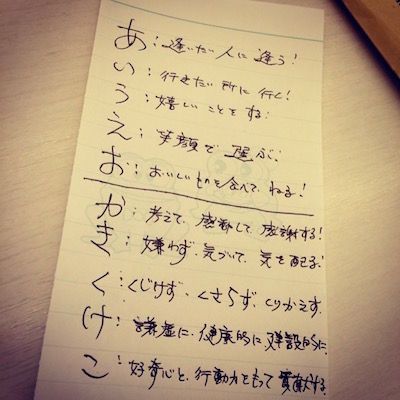 あ：逢いたい人に逢う！
い：行きたい所に行く！
う：嬉しいことをする！
え：笑顔で選ぶ！
お：おいしいものを食べて ねる！
か：考えて、感動して、感謝する！
き：嫌わず、気づいて、気を配る！
く：くじけず、くさらず、くりかえす。
け：謙虚に、健康的に、建設的に
こ：好奇心と、行動力をもって 貢献する